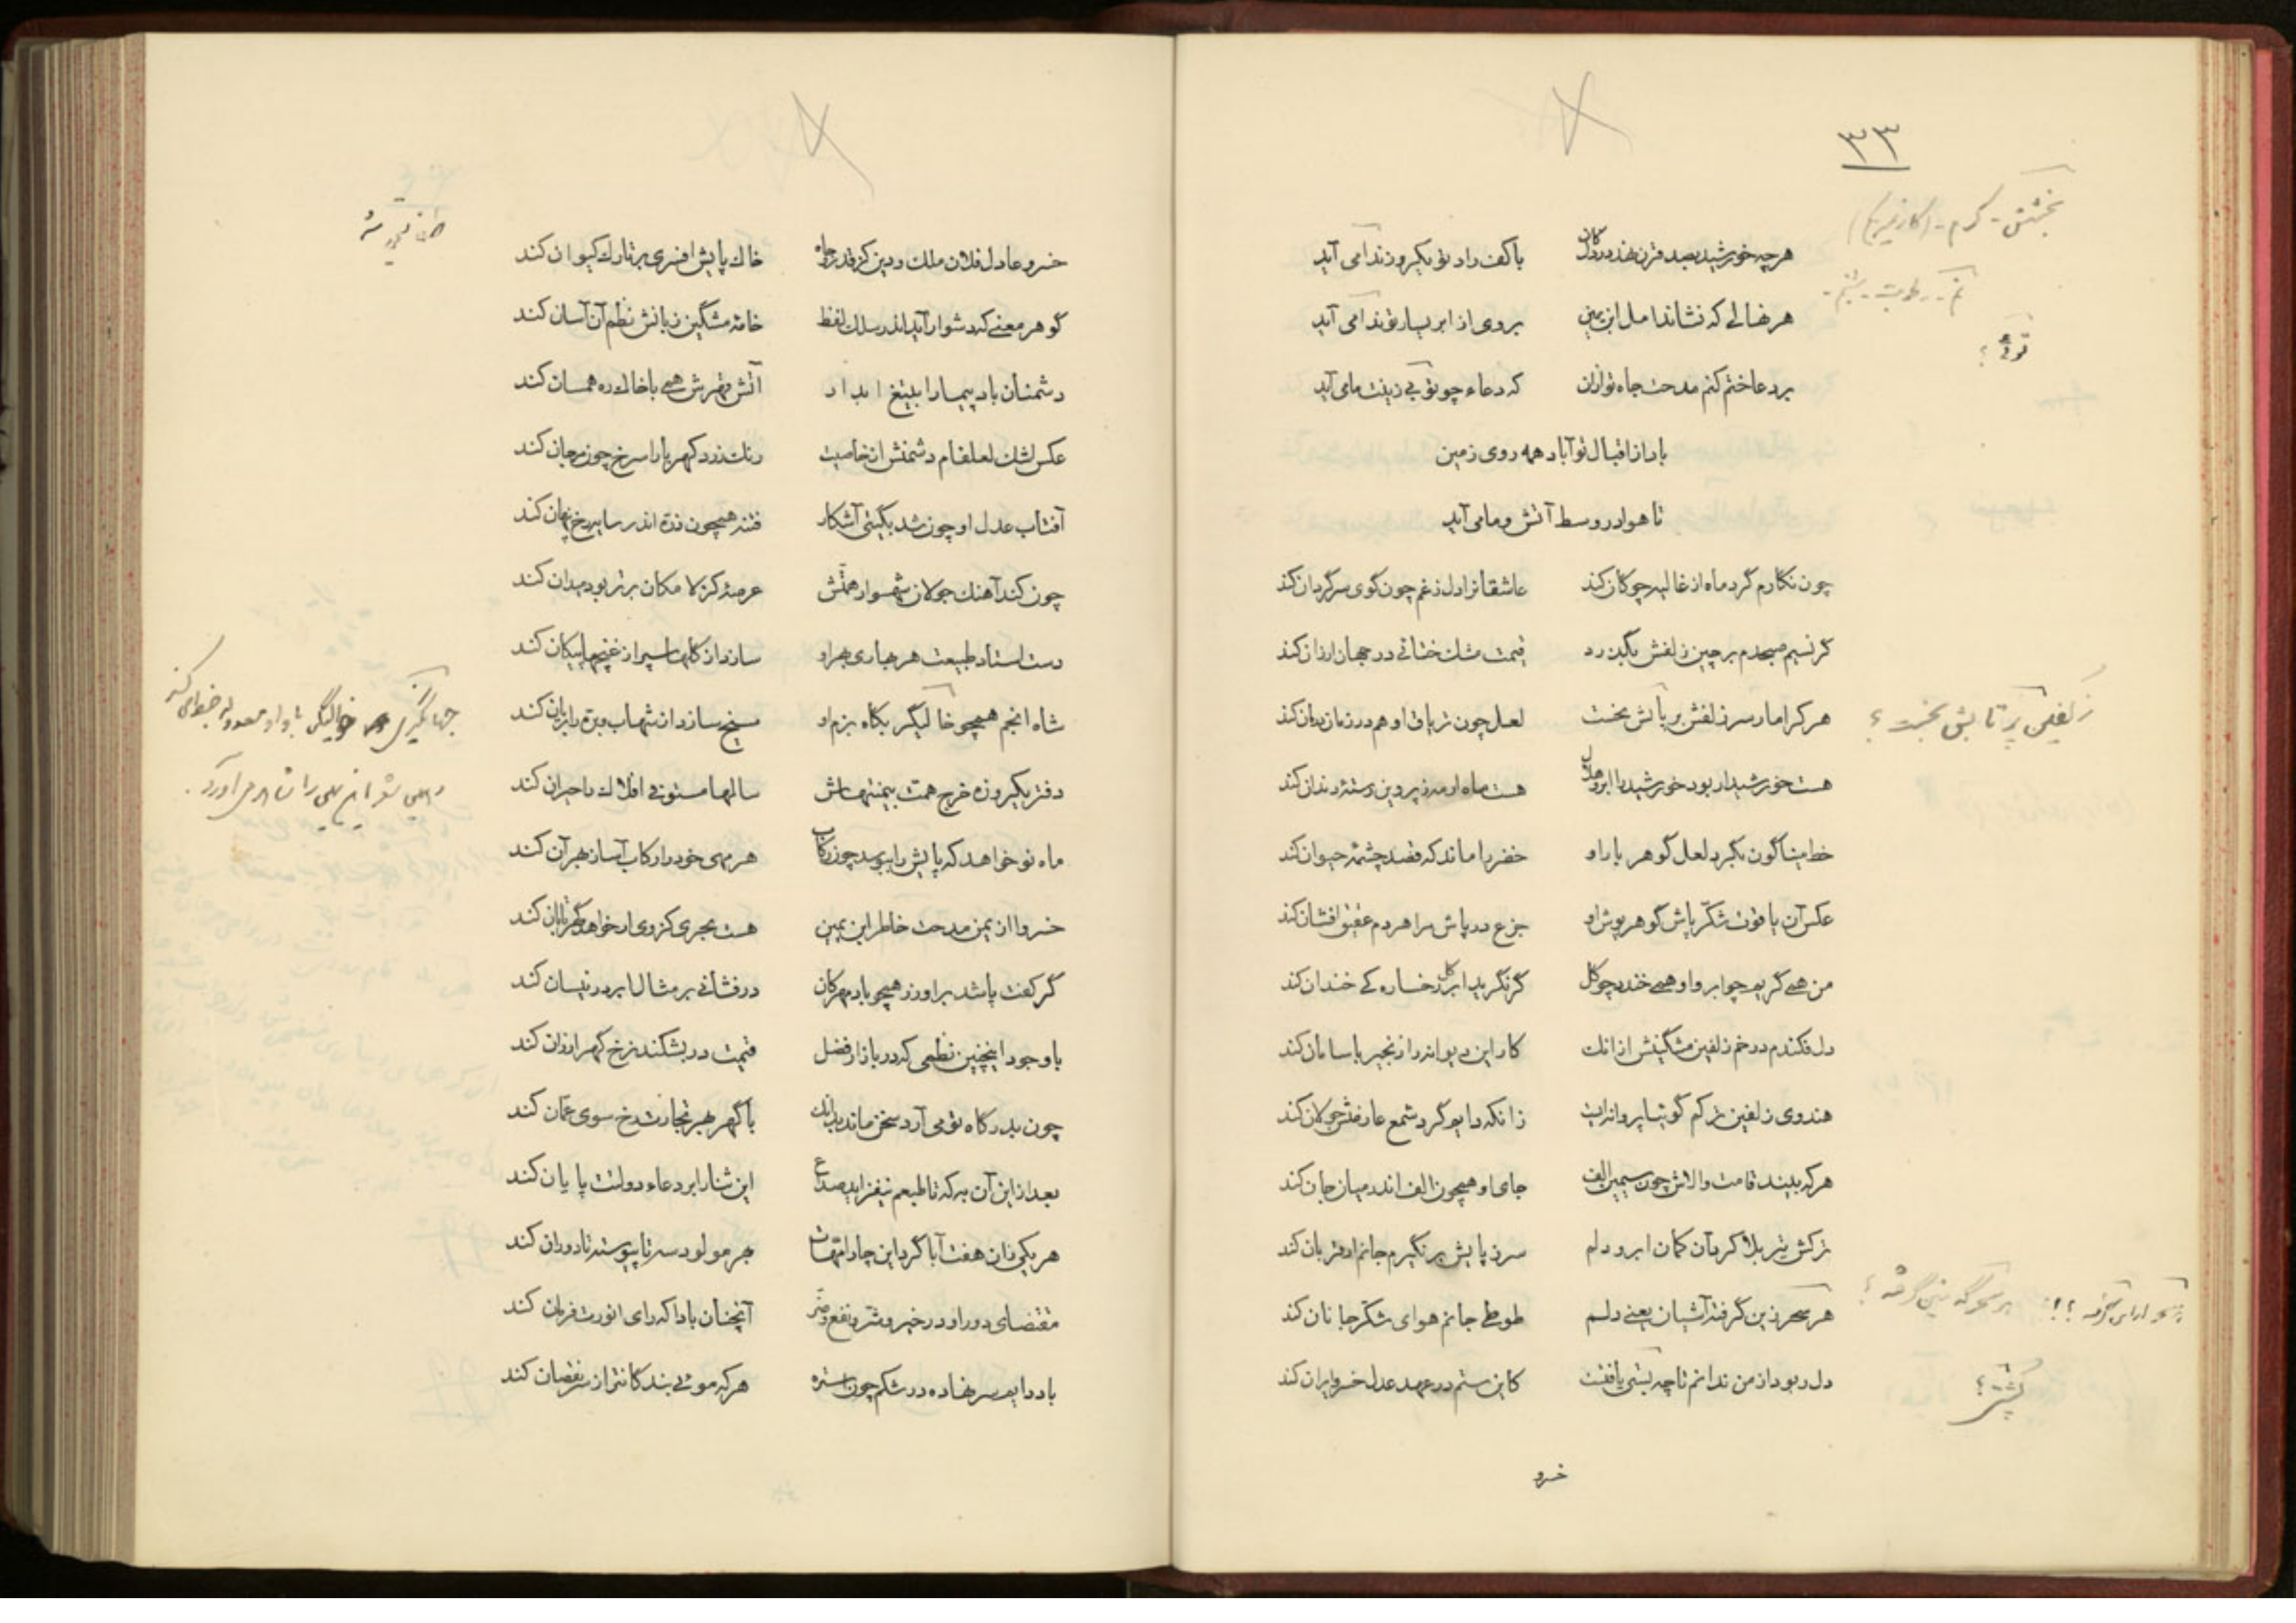 ٣٣
بخشش - کرم -
هر چه خورشید بصد قرن نهد در دل کان با کف راد تو یکروزه ندا می آید
هر نهالی که نشاند امل ابن یمین بروی از ابر یسار تو ندا می آید
توئی ؟
بر دعا ختم کنم مدحت جاه تو از آن که دعاء چو توئی زینت ما می آید
باد از اقبال تو آباد همه روی زمین
تا هوا در وسط آتش و ما می آید
چون نگارم گرد ماه از غالیه چوگان کند عاشقانرا دل ز غم چون گوی سرگردان کند
گر نسیم صبحدم بر چین زلفش بگذرد قیمت مشک ختائی در جهان ارزان کند
هر کرا مار سر زلفش بخست لعل چون تریاق او هم در زمان درمان کند
زلفش بخست ؟
هست خورشید ار بود خورشید را ابرو هلال هست ماه ار مه ز پروین رسته دندان کند
خط میناگون بگرد لعل گوهر بار او خضر را ماند که قصد چشمهٔ حیوان کند
عکس آن یاقوت شکّر پاش گوهر پوش او جزع در پاش مرا هر دم عقیق افشان کند
من همی گریم چو ابر و او همی خندد چو گل گر نگرید ابر گل رخساره کی خندان کند
دل فکندم در خم زلفین مشگینش از انک کار این دیوانه را زنجیر با سامان کند
هندوی زلفین ترکم گوئیا پروانه ایست زانکه دایم گرد شمع عارضش جولان کند
هر که بیند قامت والاش چون سیمین الف جای او همچون الف اندر میان جان کند
ترکش تیر بلا کرد آن کمان ابرو دلم سر ز پایش بر نگیرم جانم ار قربان کند
هر سحر زین گرفته آشیان یعنی دلم طوطی جانم هوای شکّر جانان کند
دل ربود از من ندانم تا چه پشتی یافتست کاین ستم در عهد عدل خسرو ایران کند
خسرو
خسرو عادل فلان ملک و دین کز قدر و جاه خاک پایش افسری بر تارک کیوان کند
گوهر معنی که دشوار آید اندر سلک لفظ خامهٔ مشگین زبانش نظم آن آسان کند
دشمنان باد پیما را بتیغ آبدار آتش قهرش همی با خاک ره همسان کند
عکس اشک لعلفام دشمنش از خاصیت رنگ زرد کهربا را سرخ چون مرجان کند
آفتاب عدل او چون شد بگیتی آشکار فتنه همچون ذرّه اندر سایه رخ پنهان کند
چون کند آهنگ جولان شهسوار همّتش عرصهٔ کز لا مکان برتر بود میدان کند
دست استاد طبیعت هر بهاری بهر او سازد از گلها سپر از غنچها پیکان کند
شاه انجم همچو خالیگر بگاه بزم او سیخ سازد از شهاب و برّه را بریان کند
دفتر یکروزه خرج همت بی منتهاش سالها مستوفی افلاک را حیران کند
ماه نو خواهد که پایش را ببوسد چون رکاب هر مهی خود را رکاب آسا ز بهر آن کند
خسروا از یمن مدحت خاطر ابن یمین هست بحری کز وی ار خواهد گهر تابان کند
گر کفت پاشد بر او زر همچو باد مهرگان در فشانی بر مثال ابر در نیسان کند
با وجود اینچنین نظمی که در بازار فضل قیمت در بشکند نرخ گهر ارزان کند
چون بدرگاه تو می آرد سخن ماند بدانک با گهر بهر تجارت رخ سوی عمّان کند
بعد از این آن به که تا طبعم نیفزاید صداع این ثنا را بر دعاء دولتت پایان کند
هر یکی زان هفت آبا گرد این چار امّهات بهر مولود سه تا پیوسته تا دوران کند
مقتضای دور او در خیر و شرّ و نفع و ضرّ آنچنان بادا که رای انورت فرمان کند
باد دایم سر نهاده در شکم چون استره هر که موئی بندگانترا ز سر نقصان کند